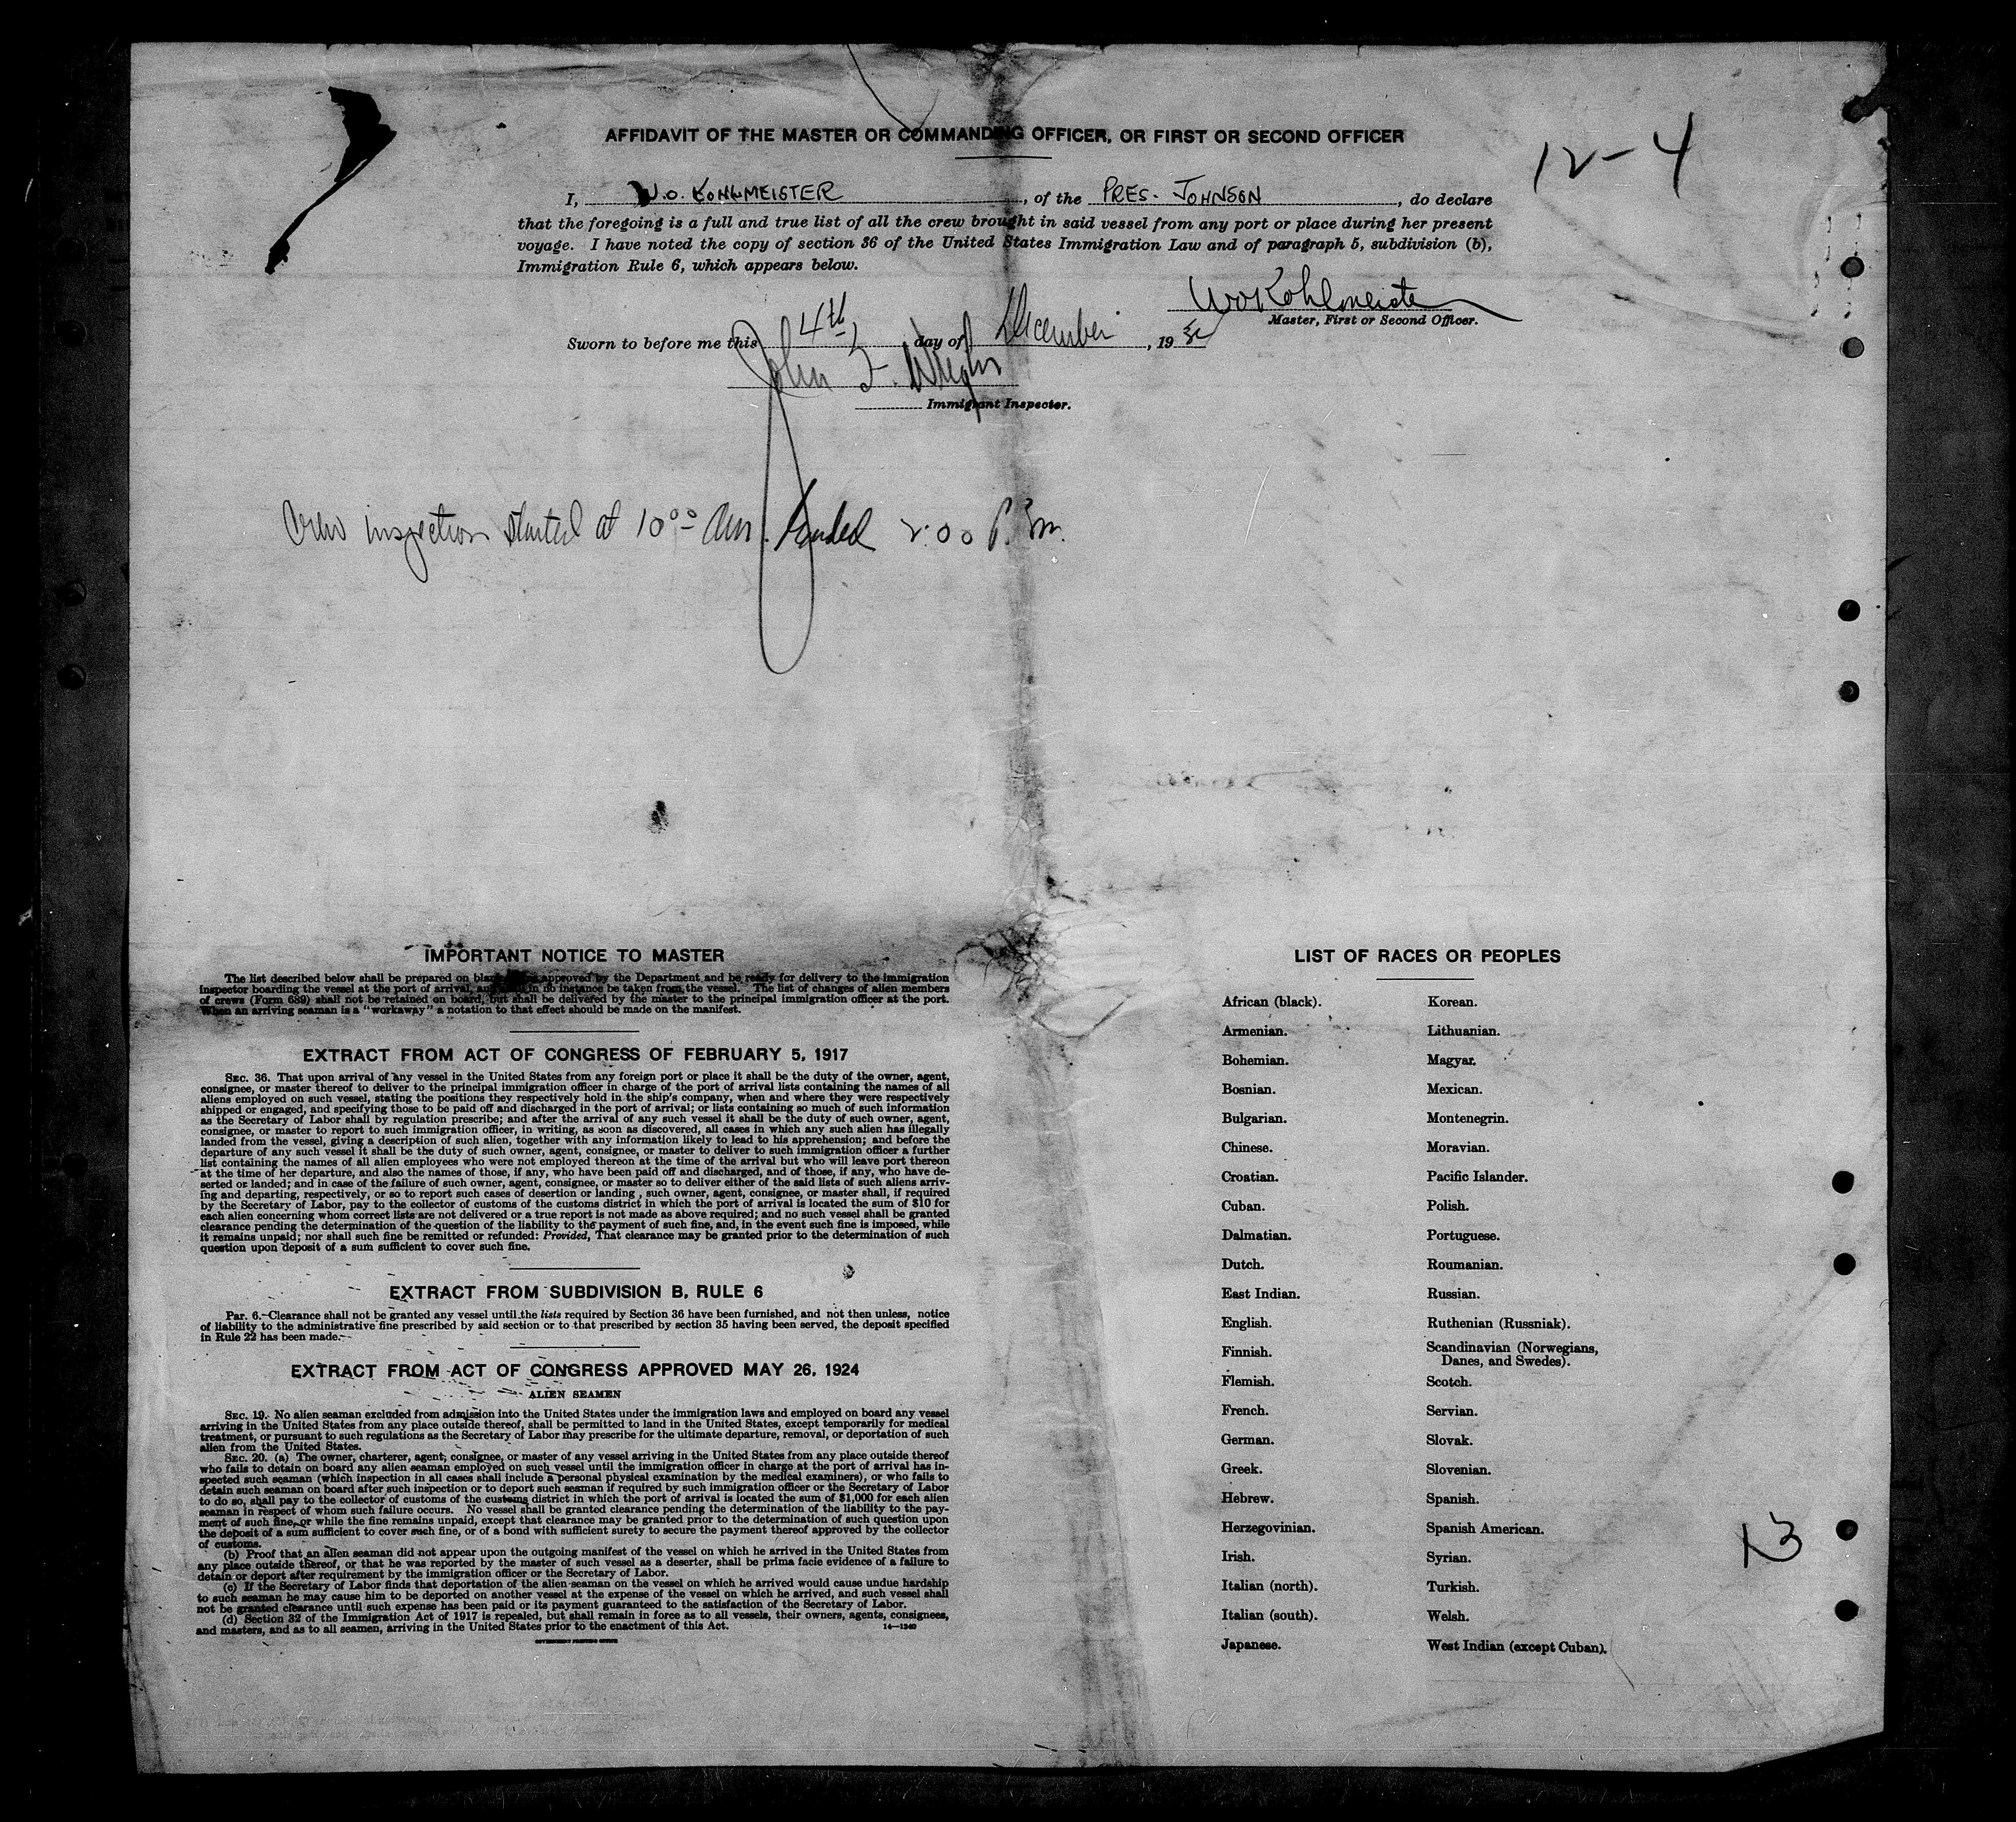 AFFIDAVIT OF THE MASTER OR COMMANDING OFFICER, OR FIRST OR SECOND OFFICER
12-4
I, W.O. KOHLMEISTER, of the PRES. JOHNSON, do declare
that the foregoing is a full and true list of all the crew brought in said vessel from any port or place during her present
voyage. I have noted the copy of section 36 of the United States Immigration Law and of paragraph 5, subdivision (b),
Immigration Rule 6, which appears below.
WOKohlmeister
Master, First or Second Officer.
Sworn to before me this 4th day of December, 19
John F.
Immigrant Inspector.
Crew inspection started at 10:00 Am. ended 2:00 P.M.
IMPORTANT NOTICE TO MASTER
The list described below shall be prepared on approved by the Department and be ready for delivery to the immigration
inspector boarding the vessel at the port of arrival, and in no instance be taken from the vessel. The list of changes of alien members
of crews (Form 689) shall not be retained on board, but shall be delivered by the master to the principal immigration officer at the port.
When an arriving seaman is a "workaway" a notation to that effect should be made on the manifest.
EXTRACT FROM ACT OF CONGRESS OF FEBRUARY 5, 1917
SEC. 36. That upon arrival of any vessel in the United States from any foreign port or place it shall be the duty of the owner, agent,
consignee, or master thereof to deliver to the principal immigration officer in charge of the port of arrival lists containing the names of all
aliens employed on such vessel, stating the positions they respectively hold in the ship's company, when and where they were respectively
shipped or engaged, and specifying those to be paid off and discharged in the port of arrival; or lists containing so much of such information
as the Secretary of Labor shall by regulation prescribe; and after the arrival of any such vessel it shall be the duty of such owner, agent,
consignee, or master to report to such immigration officer, in writing, as soon as discovered, all cases in which any such alien has illegally
landed from the vessel, giving a description of such alien, together with any information likely to lead to his apprehension; and before the
departure of any such vessel it shall be the duty of such owner, agent, consignee, or master to deliver to such immigration officer a further
list containing the names of all alien employees who were not employed thereon at the time of the arrival but who will leave port thereon
at the time of her departure, and also the names of those, if any, who have been paid off and discharged, and of those, if any, who have de-
serted or landed; and in case of the failure of such owner, agent, consignee, or master so to deliver either of the said lists of such aliens arriv-
ing and departing, respectively, or so to report such cases of desertion or landing, such owner, agent, consignee, or master shall, if required
by the Secretary of Labor, pay to the collector of customs of the customs district in which the port of arrival is located the sum of $10 for
each alien concerning whom correct lists are not delivered or a true report is not made as above required; and no such vessel shall be granted
clearance pending the determination of the question of the liability to the payment of such fine, and, in the event such fine is imposed, while
it remains unpaid; nor shall such fine be remitted or refunded: Provided, That clearance may be granted prior to the determination of such
question upon deposit of a sum sufficient to cover such fine.
EXTRACT FROM SUBDIVISION B, RULE 6
Par. 6.—Clearance shall not be granted any vessel until the lists required by Section 36 have been furnished, and not then unless, notice
of liability to the administrative fine prescribed by said section or to that prescribed by section 35 having been served, the deposit specified
in Rule 22 has been made.
EXTRACT FROM ACT OF CONGRESS APPROVED MAY 26, 1924
ALIEN SEAMEN
SEC. 19. No alien seaman excluded from admission into the United States under the immigration laws and employed on board any vessel
arriving in the United States from any place outside thereof, shall be permitted to land in the United States, except temporarily for medical
treatment, or pursuant to such regulations as the Secretary of Labor may prescribe for the ultimate departure, removal, or deportation of such
alien from the United States.
SEC. 20. (a) The owner, charterer, agent, consignee, or master of any vessel arriving in the United States from any place outside thereof
who fails to detain on board any alien seaman employed on such vessel until the immigration officer in charge at the port of arrival has in-
spected such seaman (which inspection in all cases shall include a personal physical examination by the medical examiners), or who fails to
detain such seaman on board after such inspection or to deport such seaman if required by such immigration officer or the Secretary of Labor
to do so, shall pay to the collector of customs of the customs district in which the port of arrival is located the sum of $1,000 for each alien
seaman in respect of whom such failure occurs. No vessel shall be granted clearance pending the determination of the liability to the pay-
ment of such fine, or while the fine remains unpaid, except that clearance may be granted prior to the determination of such question upon
the deposit of a sum sufficient to cover such fine, or of a bond with sufficient surety to secure the payment thereof approved by the collector
of customs.
(b) Proof that an alien seaman did not appear upon the outgoing manifest of the vessel on which he arrived in the United States from
any place outside thereof, or that he was reported by the master of such vessel as a deserter, shall be prima facie evidence of a failure to
detain or deport after requirement by the immigration officer or the Secretary of Labor.
(c) If the Secretary of Labor finds that deportation of the alien seaman on the vessel on which he arrived would cause undue hardship
to such seaman he may cause him to be deported on another vessel at the expense of the vessel on which he arrived, and such vessel shall
not be granted clearance until such expense has been paid or its payment guaranteed to the satisfaction of the Secretary of Labor.
(d) Section 32 of the Immigration Act of 1917 is repealed, but shall remain in force as to all vessels, their owners, agents, consignees,
and masters, and as to all seamen, arriving in the United States prior to the enactment of this Act.
14—1240
GOVERNMENT PRINTING OFFICE
LIST OF RACES OR PEOPLES
African (black).
Armenian.
Bohemian.
Bosnian.
Bulgarian.
Chinese.
Croatian.
Cuban.
Dalmatian.
Dutch.
East Indian.
English.
Finnish.
Flemish.
French.
German.
Greek.
Hebrew.
Herzegovinian.
Irish.
Italian (north).
Italian (south).
Japanese.
Korean.
Lithuanian.
Magyar.
Mexican.
Montenegrin.
Moravian.
Pacific Islander.
Polish.
Portuguese.
Roumanian.
Russian.
Ruthenian (Russniak).
Scandinavian (Norwegians,
Danes, and Swedes).
Scotch.
Servian.
Slovak.
Slovenian.
Spanish.
Spanish American.
Syrian.
Turkish.
Welsh.
West Indian (except Cuban).
13